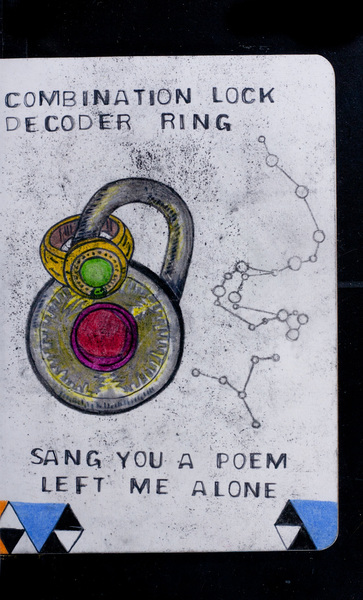 COMBINATION LOCK
DECODER RING
SANG YOU A POEM
LEFT ME ALONE